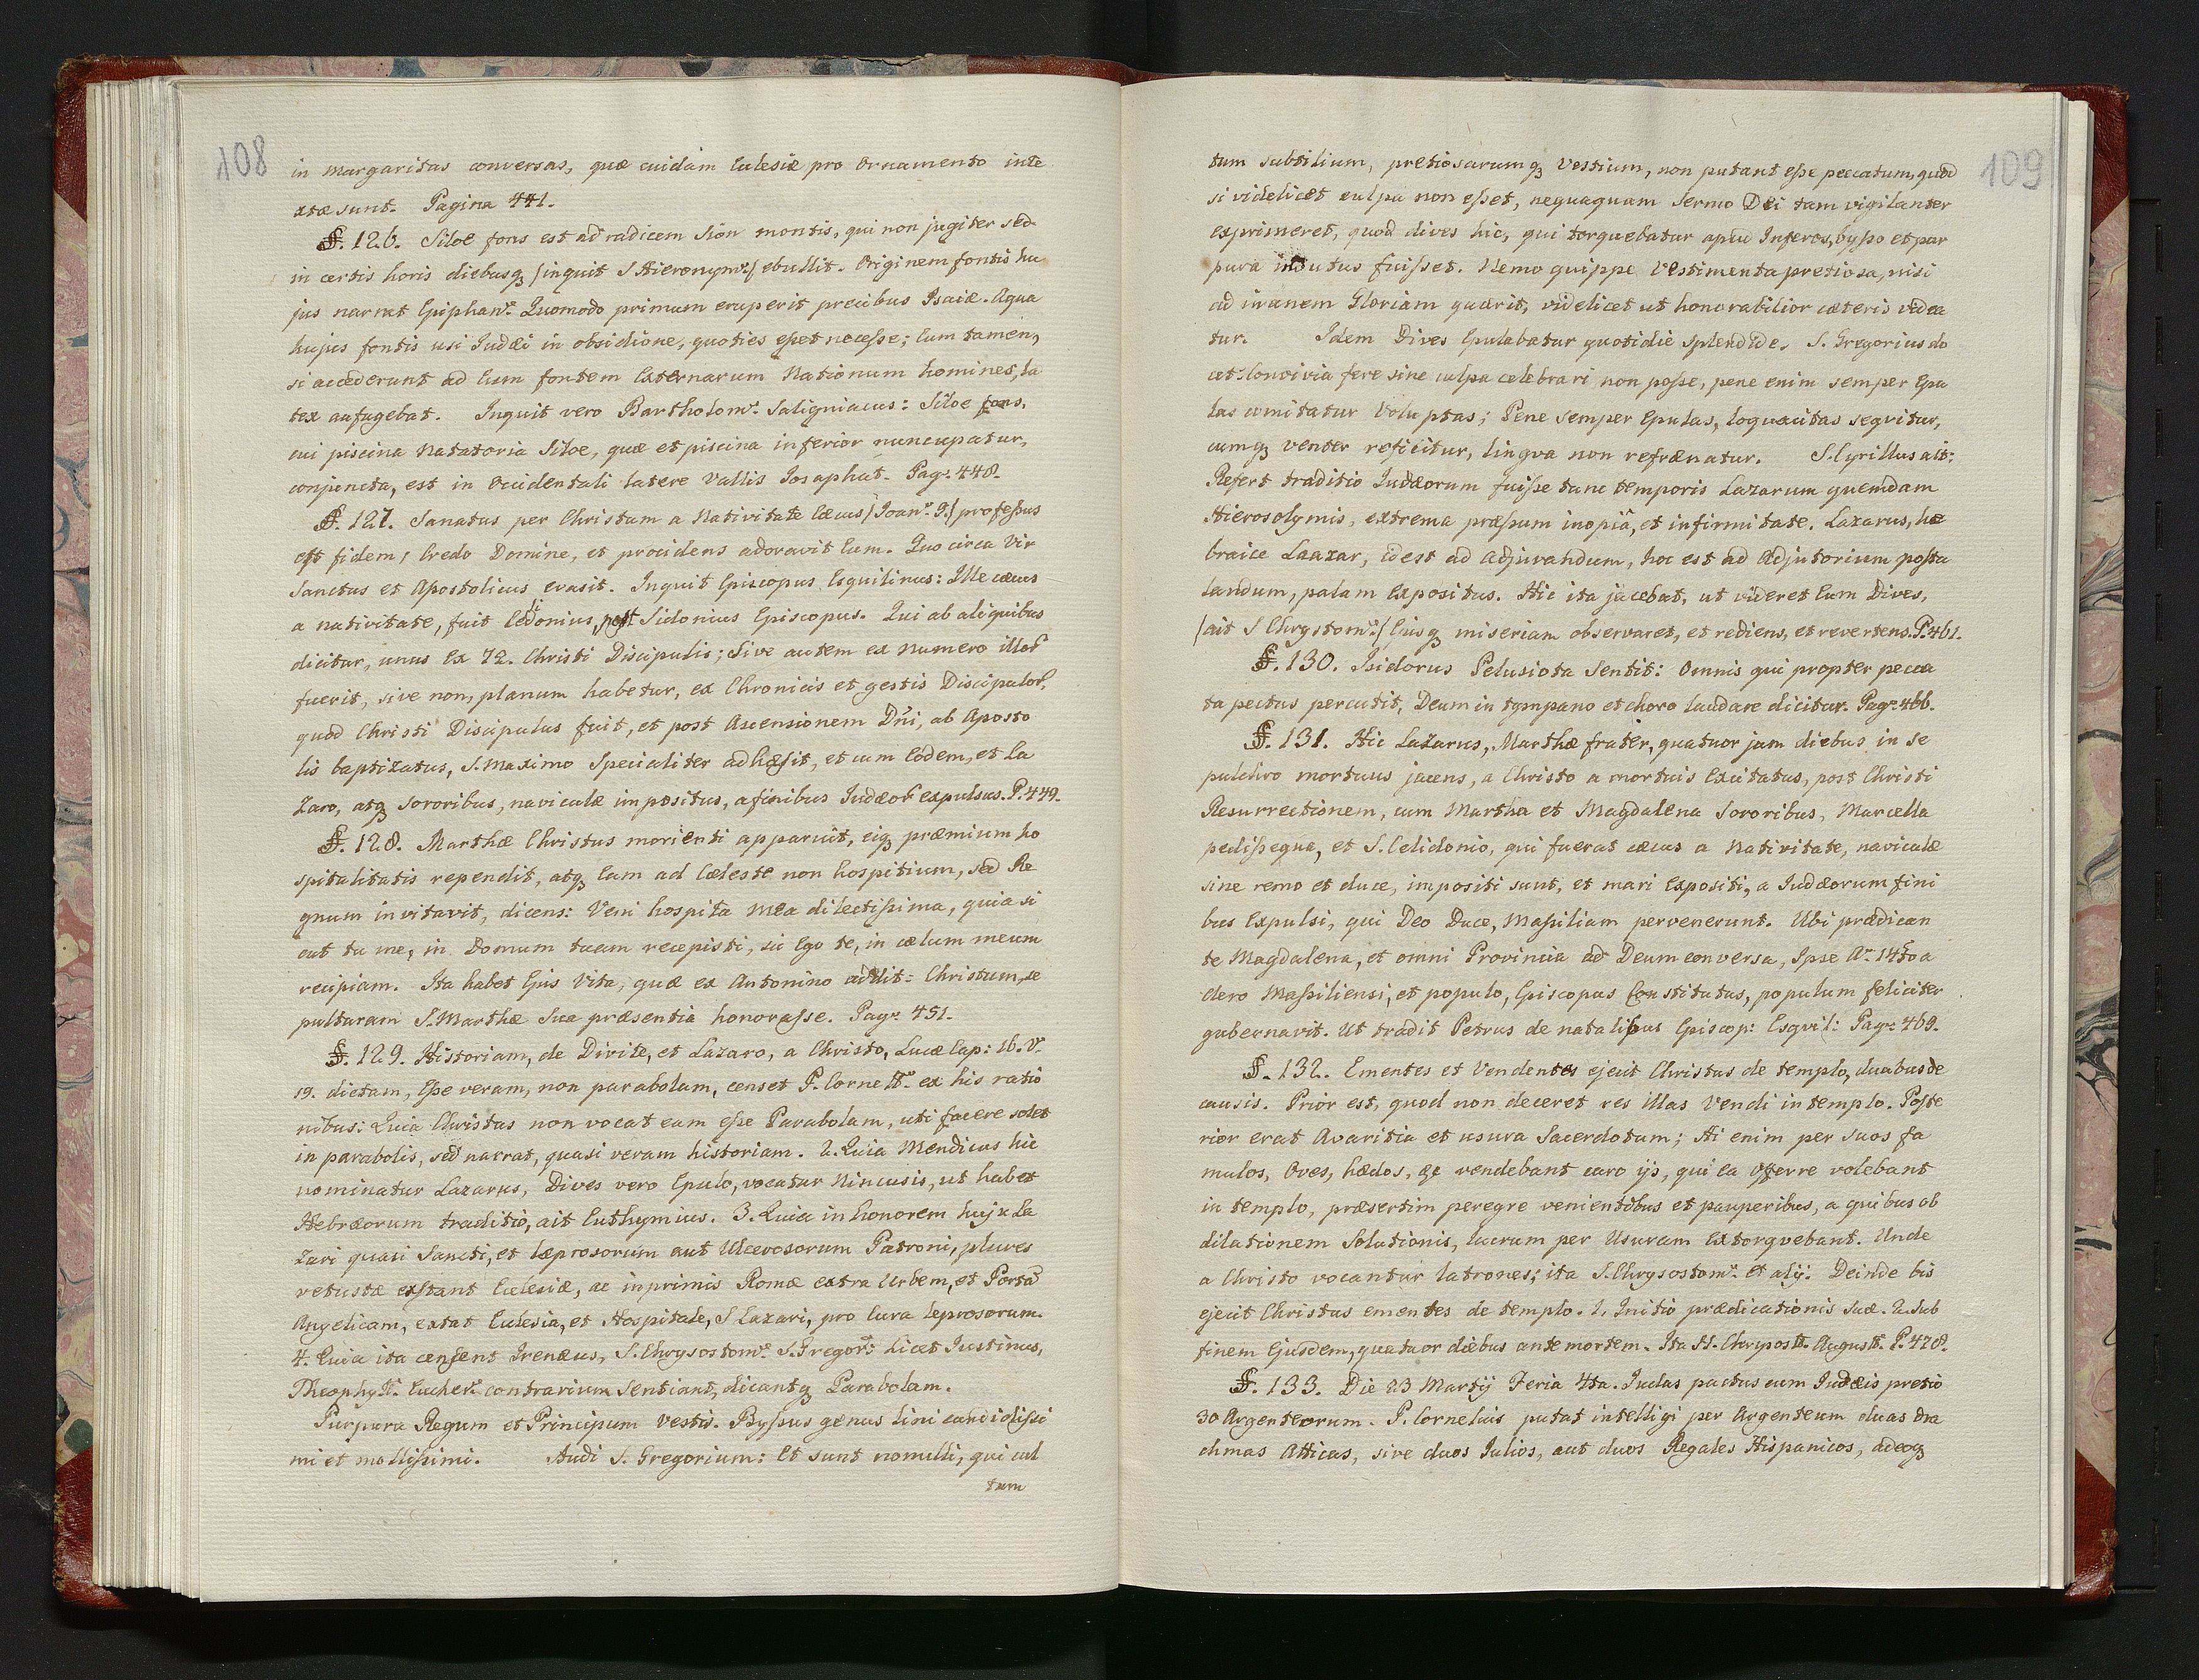 108
in margaritas conversas, quæ cuidam Eclesiæ pro ornamento inte
xtæ sunt. Pagina 441.
§. 126. Siloe fons est ad radicem Sion montis, qui non jugiter sed
in certis horis diebusq; /inquit S Hieronym9/ ebullit. Originem fontis hu
jus narrat Epiphan9 Quomodo primum eruperit precibus Isaiæ. Aqua
hujus fontis usi Judæi in obsidione, quoties eßet neceße; Cum tamen,
si accederunt ad Eum fontem Externarum Nationum homines, la
tex aufugebat. Inquit vero Bartholom9 Saligniacus: Siloe fons,
cui piscina Natatoria Siloe, quæ et piscina inferior nuncupatur,
conjuncta, est in Occidentali latere Vallis Josaphat. Pag: 448.
§. 127. Sanatus per Christum a Nativitate Cæcus /Joan: 9./ profeßus
est fidem, Credo Domine, et procidens adoravit Eum. Quo circa Vir
Sanctus et Apostolicus evasit. Inquit Episcopus Esquilinus: Ille cæcus
a nativitate, fuit Celidonius, post Sidonius Episcopus. Qui ab aliquibus
dicitur, unus Ex 72. Christi Discipulis; Sive autem ex numero illor
fuerit, sive non, planum habetur, ex Chronicis et gestis Discipulor,
quod Christi Discipulus fuit, et post Ascensionem Dni, ab Aposto
lis baptizatus, S. Maximo Specialiter adhæsit, et cum Eodem, et La
zaro, atq; sororibus, naviculæ impositus, a finibus Judæor expulsus. P. 449.
§. 128. Marthæ Christus morienti apparuit, eiq; præmium ho
spitalitatis rependit, atq; Eam ad Cæleste non hospitium, sed Re
gnum invitavit, dicens: Veni hospita Mea dilectißima, quia si
cut tu me, in Domum tuam recepisti, sic Ego te, in cælum meum
recipiam. Ita habet Ejus Vita, quæ ex Antonino addit: Christum, se
pulturam S. Marthæ Sua præsentia honoraße. Pag: 451.
§. 129. Historiam, de Divite, et Lazaro, a Christo, Lucæ Cap: 16. V.
19. dictam, Eße veram, non parabolam, censet P. Cornel9 ex his ratio
nibus: Quia Christus non vocat eam eße Parabolam, uti facere solet
in parabolis, sed narrat, quasi veram historiam. 2. Quia Mendicus hic
nominatur Lazarus, Dives vero Epulo, vocatur Nincusis, ut habet
Hebræorum traditio, ait Euthymius. 3. Quia in honorem huj9 La
zari quasi Sancti, et læprosorum aut Ulcerosorum Patroni, plures
vetustæ exstant Ecclesiæ, ac inprimis Romæ extra Urbem, et Porta
Angelicam, extat Eclesia, et Hospitale, S Lazari, pro Cura leprosorum.
4. Quia ita censent Irenæus, S. Chrysostom9 S. Gregor9: Licet Justinus,
Theophyl9 Eucher9 contrarium Sentiant, dicantq; Parabolam.
Purpura Regum et Principum Vestis. Byßus genus lini candidißi
mi et mollißimi. Audi S. Gregorium: Et sunt nonulli, qui cul
tum
109
tum subtilium, pretiosarumq; Vestium, non putant eße peccatum, quod
si videlicet culpa non eßet, nequaquam Sermo Dei tam vigilanter
exprimeret, quod dives hic, qui torquebatur apud Inferos, byßo et pur
pura indutus fuißet. Nemo quippe Vestimenta pretiosa, nisi
ad inanem Gloriam quærit, videlicet ut honorabilior cæteris videa
tur. Idem Dives Epulabatur quotidie Splendide. S. Gregorius do
cet: Convivia fere sine culpa celebrari non poße, pene enim semper Epu
las comitatur Voluptas; Pene semper Epulas, loquacitas seqvitur,
cumq; venter reficitur, lingva non refrænatur. S. Cyrillus ait:
Refert traditio Judæorum fuiße tunc temporis Lazarum quemdam
Hierosolymis, extrema præßum inopiâ, et infirmitate. Lazarus, hæ
braice Laazar, id est ad adjuvandum, hoc est ad Adjutorium postu
landum, palam Expositus. Hic ita jacebat, ut videret Eum Dives,
/ait S Chrystom9/ Eiusq; miseriam observaret, et rediens, et revertens. P. 461.
§. 130. Isidorus Pelusiota Sentit: Omnis qui propter pecca
ta pectus percutit, Deum in tympano et choro laudare dicitur. Pag: 466.
§. 131. Hic Lazarus, Marthæ frater, quatuor jam diebus in se
pulchro mortuus jacens, a Christo a mortuis Excitatus, post Christi
Resurrectionem, cum Martha et Magdalena Sororibus, Marcella
pedißequa, et S. Celidonio, qui fuerat cæcus a Nativitate, naviculæ
sine remo et duce, impositi sunt, et mari Expositi, a Judæorum fini
bus Expulsi, qui Deo Duce, Maßiliam pervenerunt. Ubi prædican
te Magdalena, et omni Provincia ad Deum conversa, Ipse a
Clero Maßiliensi, et populo, Episcopus Constitutus, populum feliciter
gubernavit. Ut tradit Petrus de natalibus Episcop: Esqvil: Pag: 469.
§. 132. Ementes et Vendentes ejecit Christus de templo, duabus de
causis. Prior est, quod non deceret res illas Vendi in templo. Poste
rior erat Avaritia et usura Sacerdotum; Hi enim per suos fa
mulos, Oves, hædos, &c vendebant caro ijs, qui Ea offerre volebant
in templo, præsertim peregre venientibus et pauperibus, a quibus ob
dilationem Solutionis, lucrum per Usuram Extorqvebant. Unde
a Christo vocantur latrones; ita S. Chrysostom9 Et alij. Deinde bis
ejecit Christus ementes de templo. 1. Initio prædicationis suæ. 2. Sub
finem Ejusdem, quatuor diebus ante mortem. Ita SS. Chrysost. August. P. 470.
§. 133. Die 23 Martij Feria 4ta. Judas pactus cum Judæis pretio
30 Argenteorum. P. Cornelius putat intelligi per Argenteum duas dra
chmas Atticas, sive duos Julios, aut duos Regales Hispanicos, adeoq;